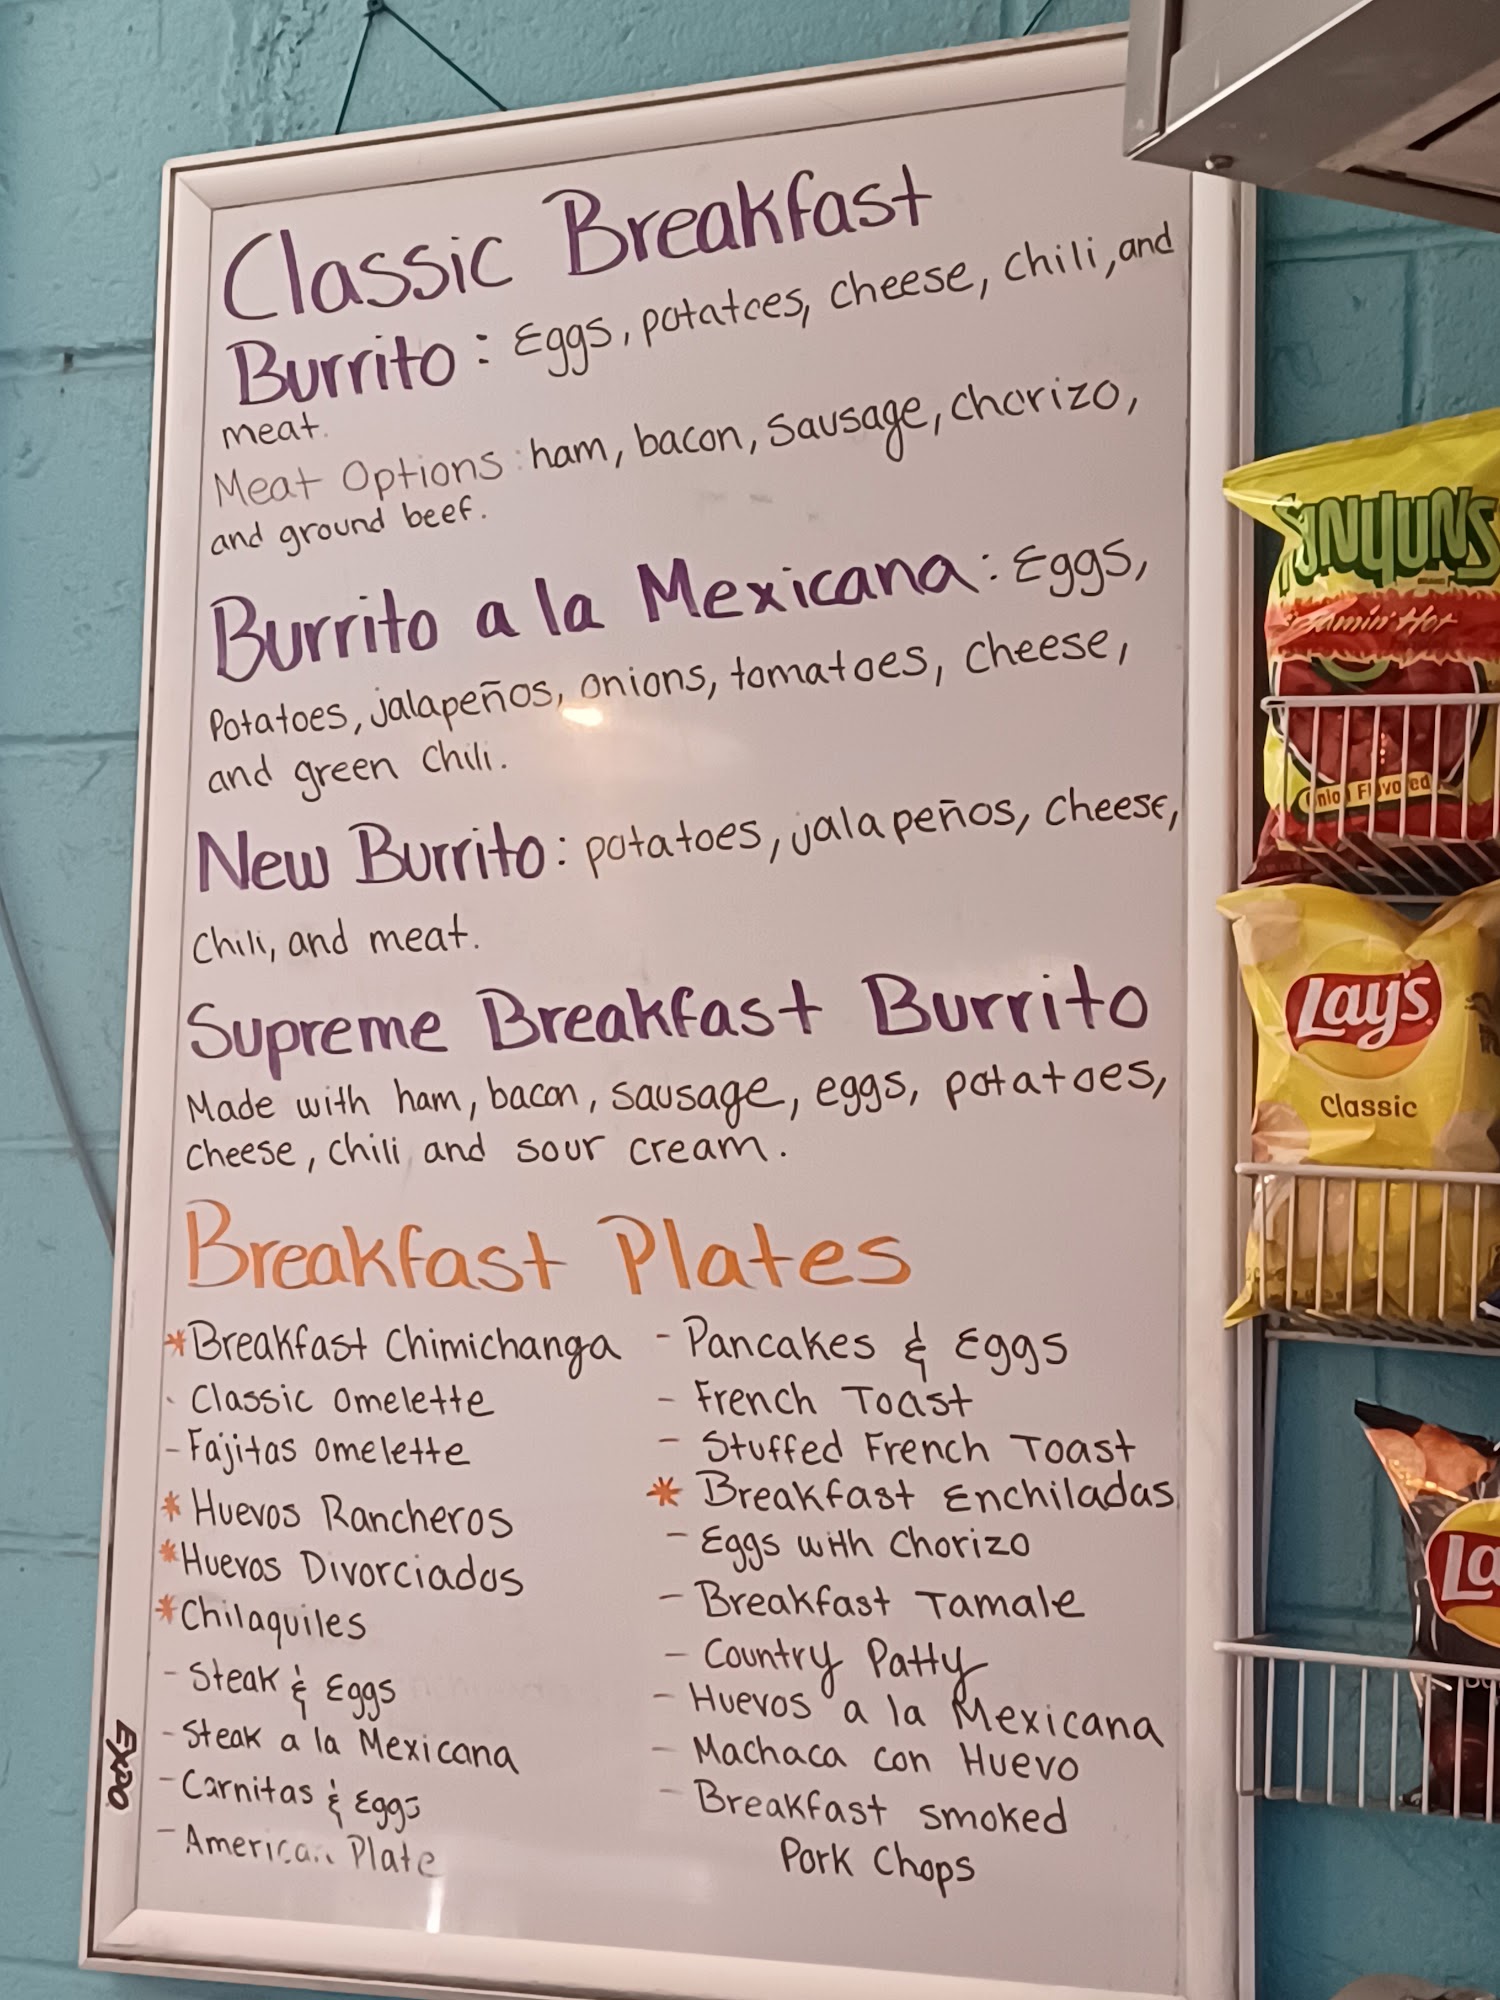 Classic Breakfast
Burrito: Eggs, potatoes, cheese, chili, and
meat.
Meat Options: ham, bacon, sausage, chorizo,
and ground beef.
Burrito a la Mexicana: Eggs,
Potatoes, jalapeños, onions, tomatoes, cheese,
and green chili.
New Burrito: potatoes, jalapeños, cheese,
chili, and meat.
Supreme Breakfast Burrito
Made with ham, bacon, sausage, eggs, potatoes,
cheese, chili and sour cream.
Breakfast Plates
*Breakfast Chimichanga
- Classic Omelette
- Fajitas Omelette
* Huevos Rancheros
*Huevos Divorciados
*Chilaquiles
- Steak & Eggs
- Steak a la Mexicana
- Carnitas & Eggs
- American Plate
- Pancakes & Eggs
- French Toast
- Stuffed French Toast
* Breakfast Enchiladas
- Eggs with Chorizo
- Breakfast Tamale
- Country Patty
- Huevos a la Mexicana
- Machaca con Huevo
- Breakfast smoked
Pork Chops
EXPO
FUNYUNS
Flamin' Hot
Onion Flavored
Lay's
Classic